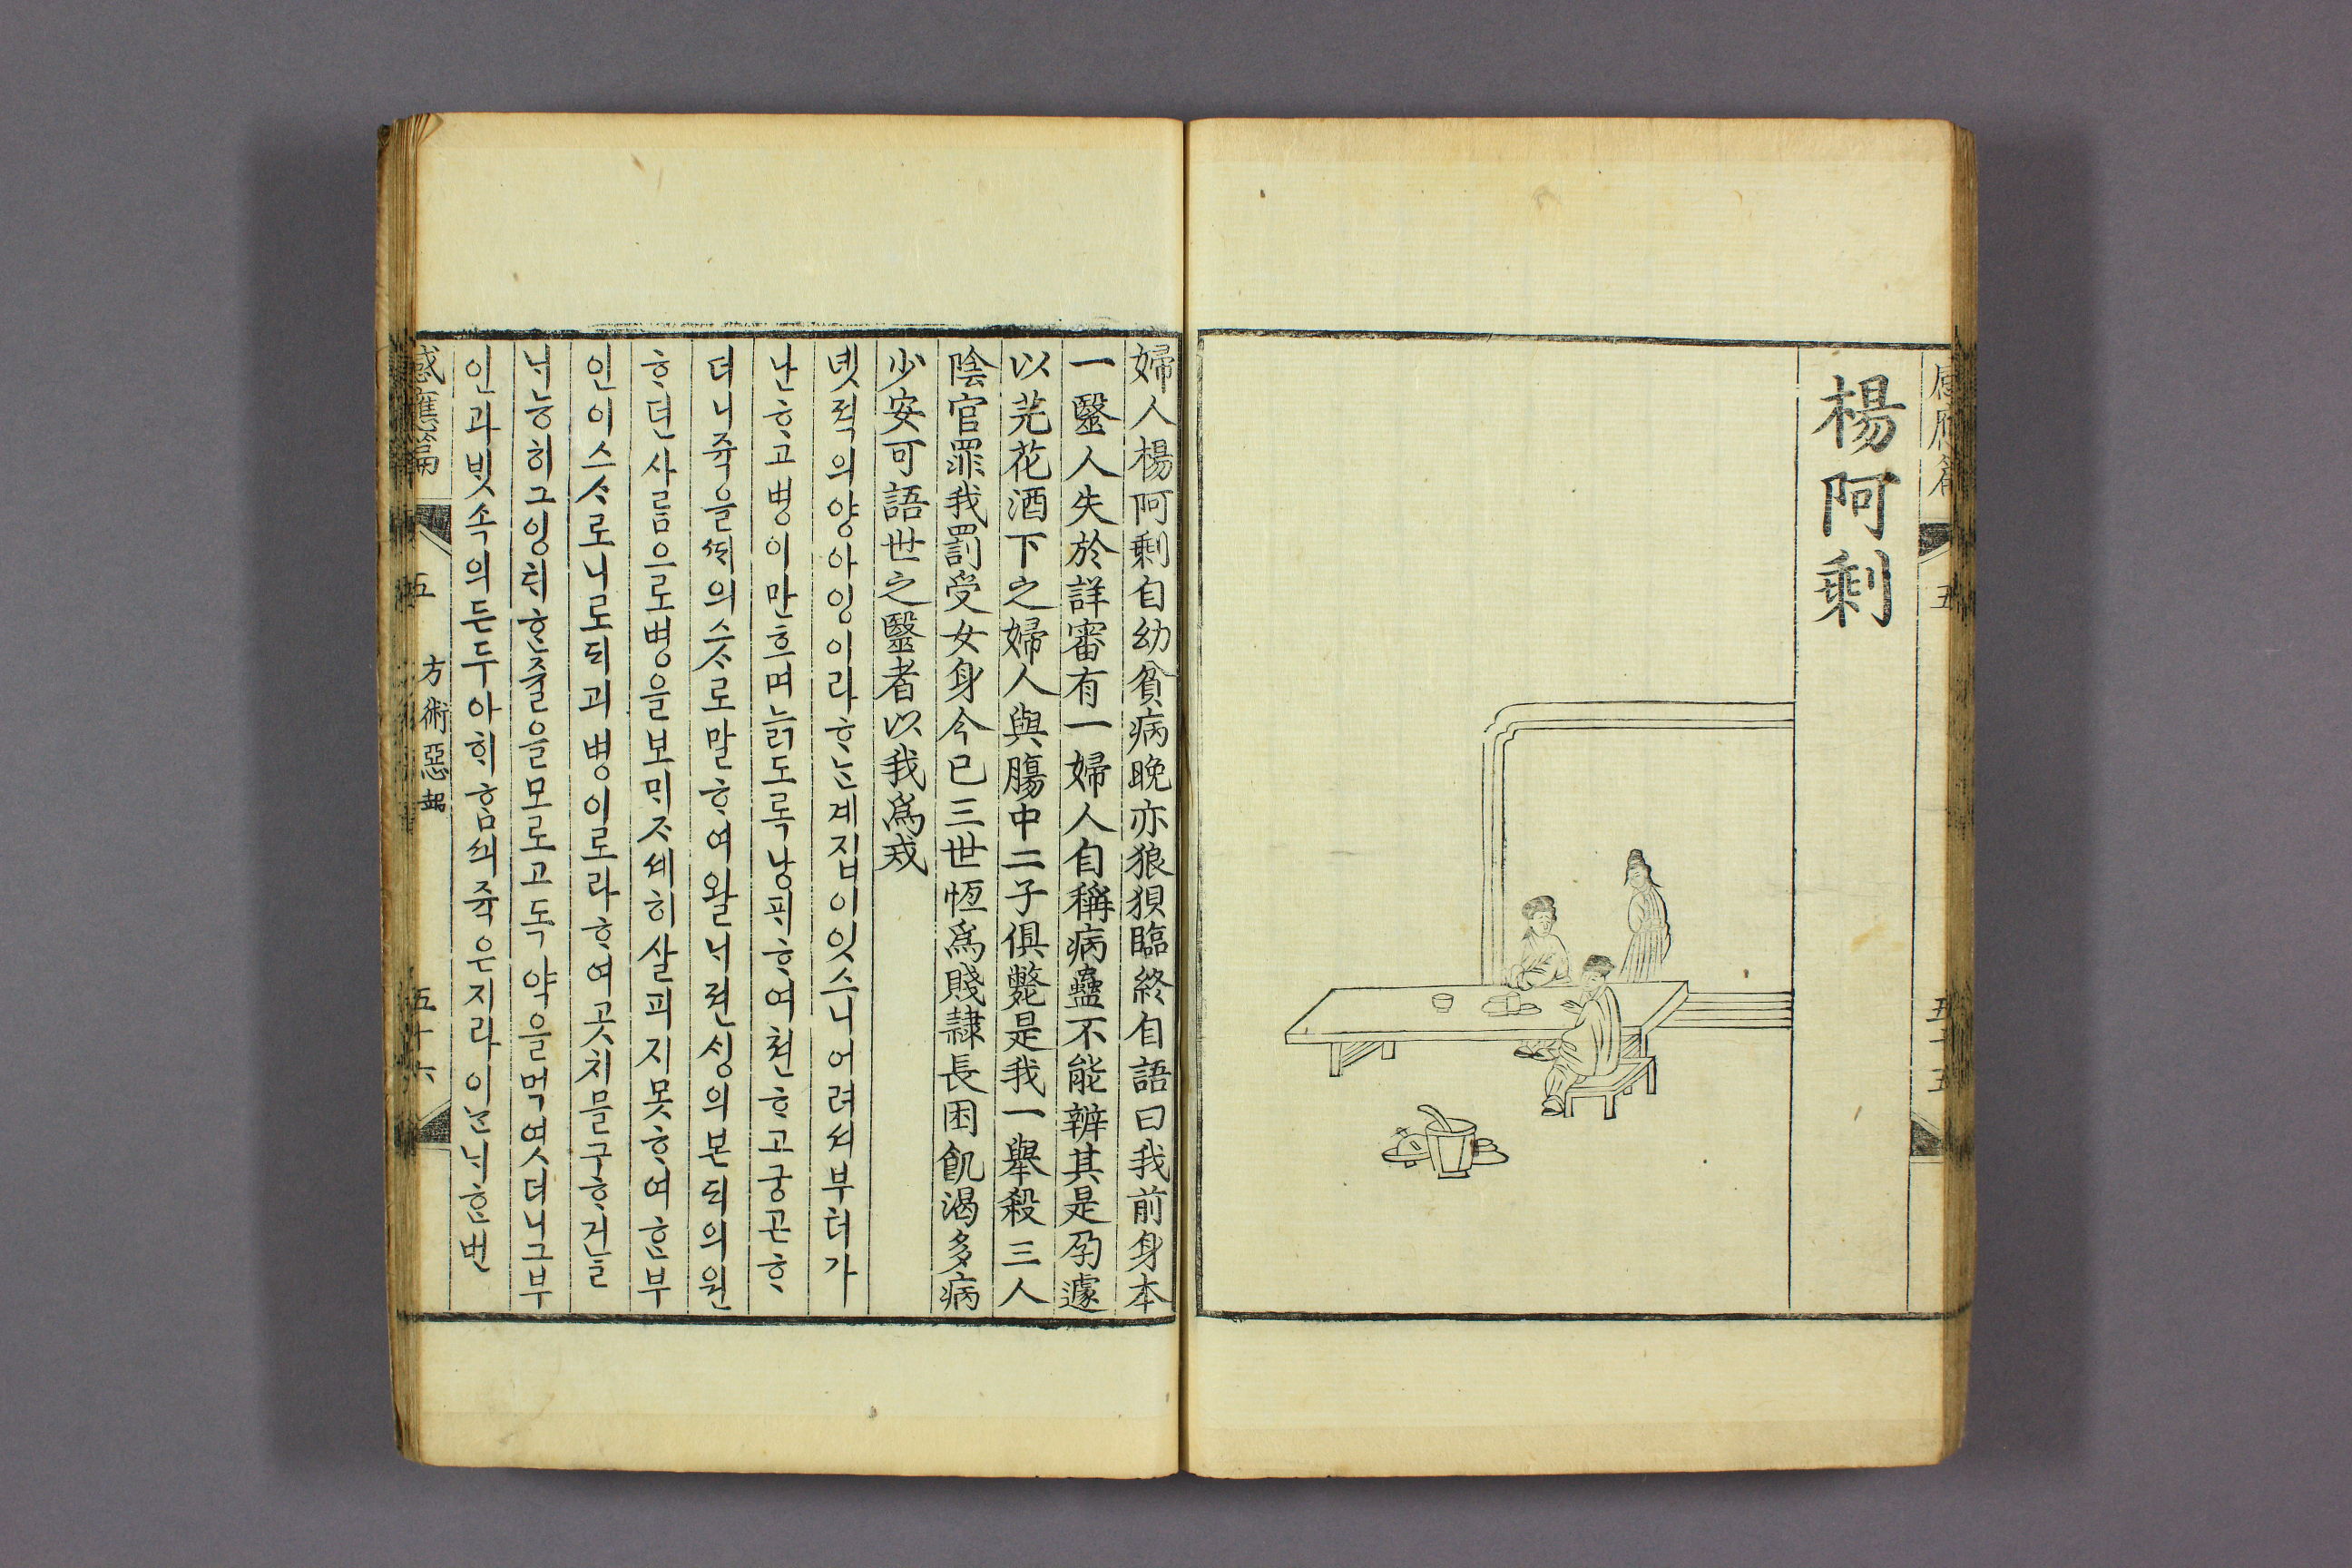 感應篇 五 五十五
楊阿剩
婦人楊阿剩自幼貧病晚亦狼狽臨終自語曰我前身本
一醫人失於詳審有一婦人自稱病蠱不能辨其是孕遽
以芫花酒下之婦人與腸中二子俱斃是我一舉殺三人
陰官罪我罰受女身今已三世恆爲賤隷長困飢渴多病
少安可語世之醫者以我爲戒
녯적의양아잉이라ᄒᆞᄂᆞᆫ계집이잇스니어려셔부터가
난ᄒᆞ고병이만흐며늙도록낭ᄑᆡᄒᆞ여쳔ᄒᆞ고궁곤ᄒᆞ
더니쥭을ᄯᆡ의스ᄉᆞ로말ᄒᆞ여왈ᄂᆡ젼ᄉᆡᆼ의본ᄃᆡ의원
ᄒᆞ던사ᄅᆞᆷ으로병을보ᄆᆡᄌᆞ셰히살피지못ᄒᆞ여ᄒᆞᆫ부
인이스ᄉᆞ로니로ᄃᆡ괴병이로라ᄒᆞ여곳치믈구ᄒᆞ거ᄂᆞᆯ
ᄂᆡ능히그잉ᄐᆡᄒᆞᆫ쥴을모로고독약을먹엿더니그부
인과ᄇᆡᆺ속의든두아ᄒᆡᄒᆞᆷᄭᅴ쥭은지라이ᄂᆞᆫᄂᆡᄒᆞᆫ번
感應篇 五 方術惡報 五十六